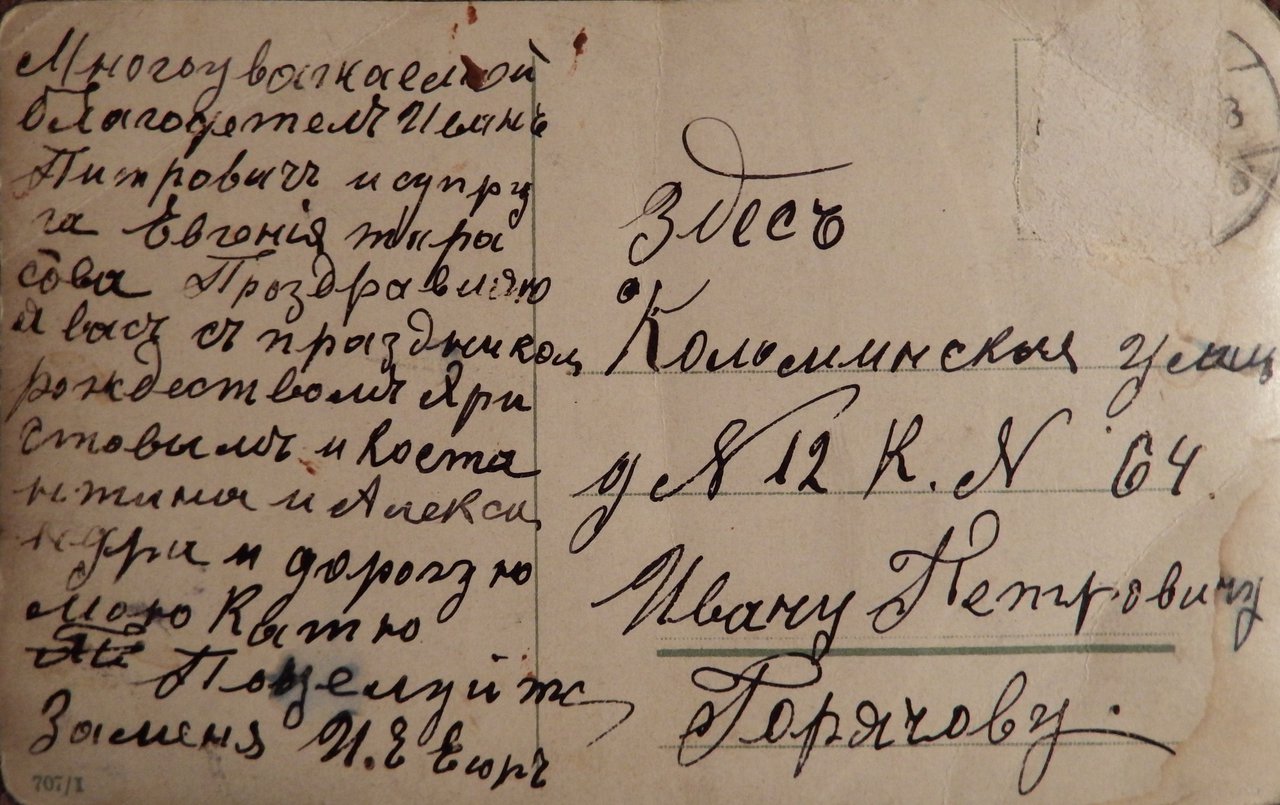 Многоуважаемой
благодетелъ Иванъ
Питровичъ и супру
га Евгенія тара
сова Проздравляю
я васъ съ праздником
рождествомъ Хри
стовымъ и Коста
нтина и Алекса
ндра и дорогую
мою Катю
Поцелуйте
Заменя И.Е Егоръ
707/I
Здесъ
Коломинская улиц
д № 12 К. № 64
Ивану Петровичу
Горячову.